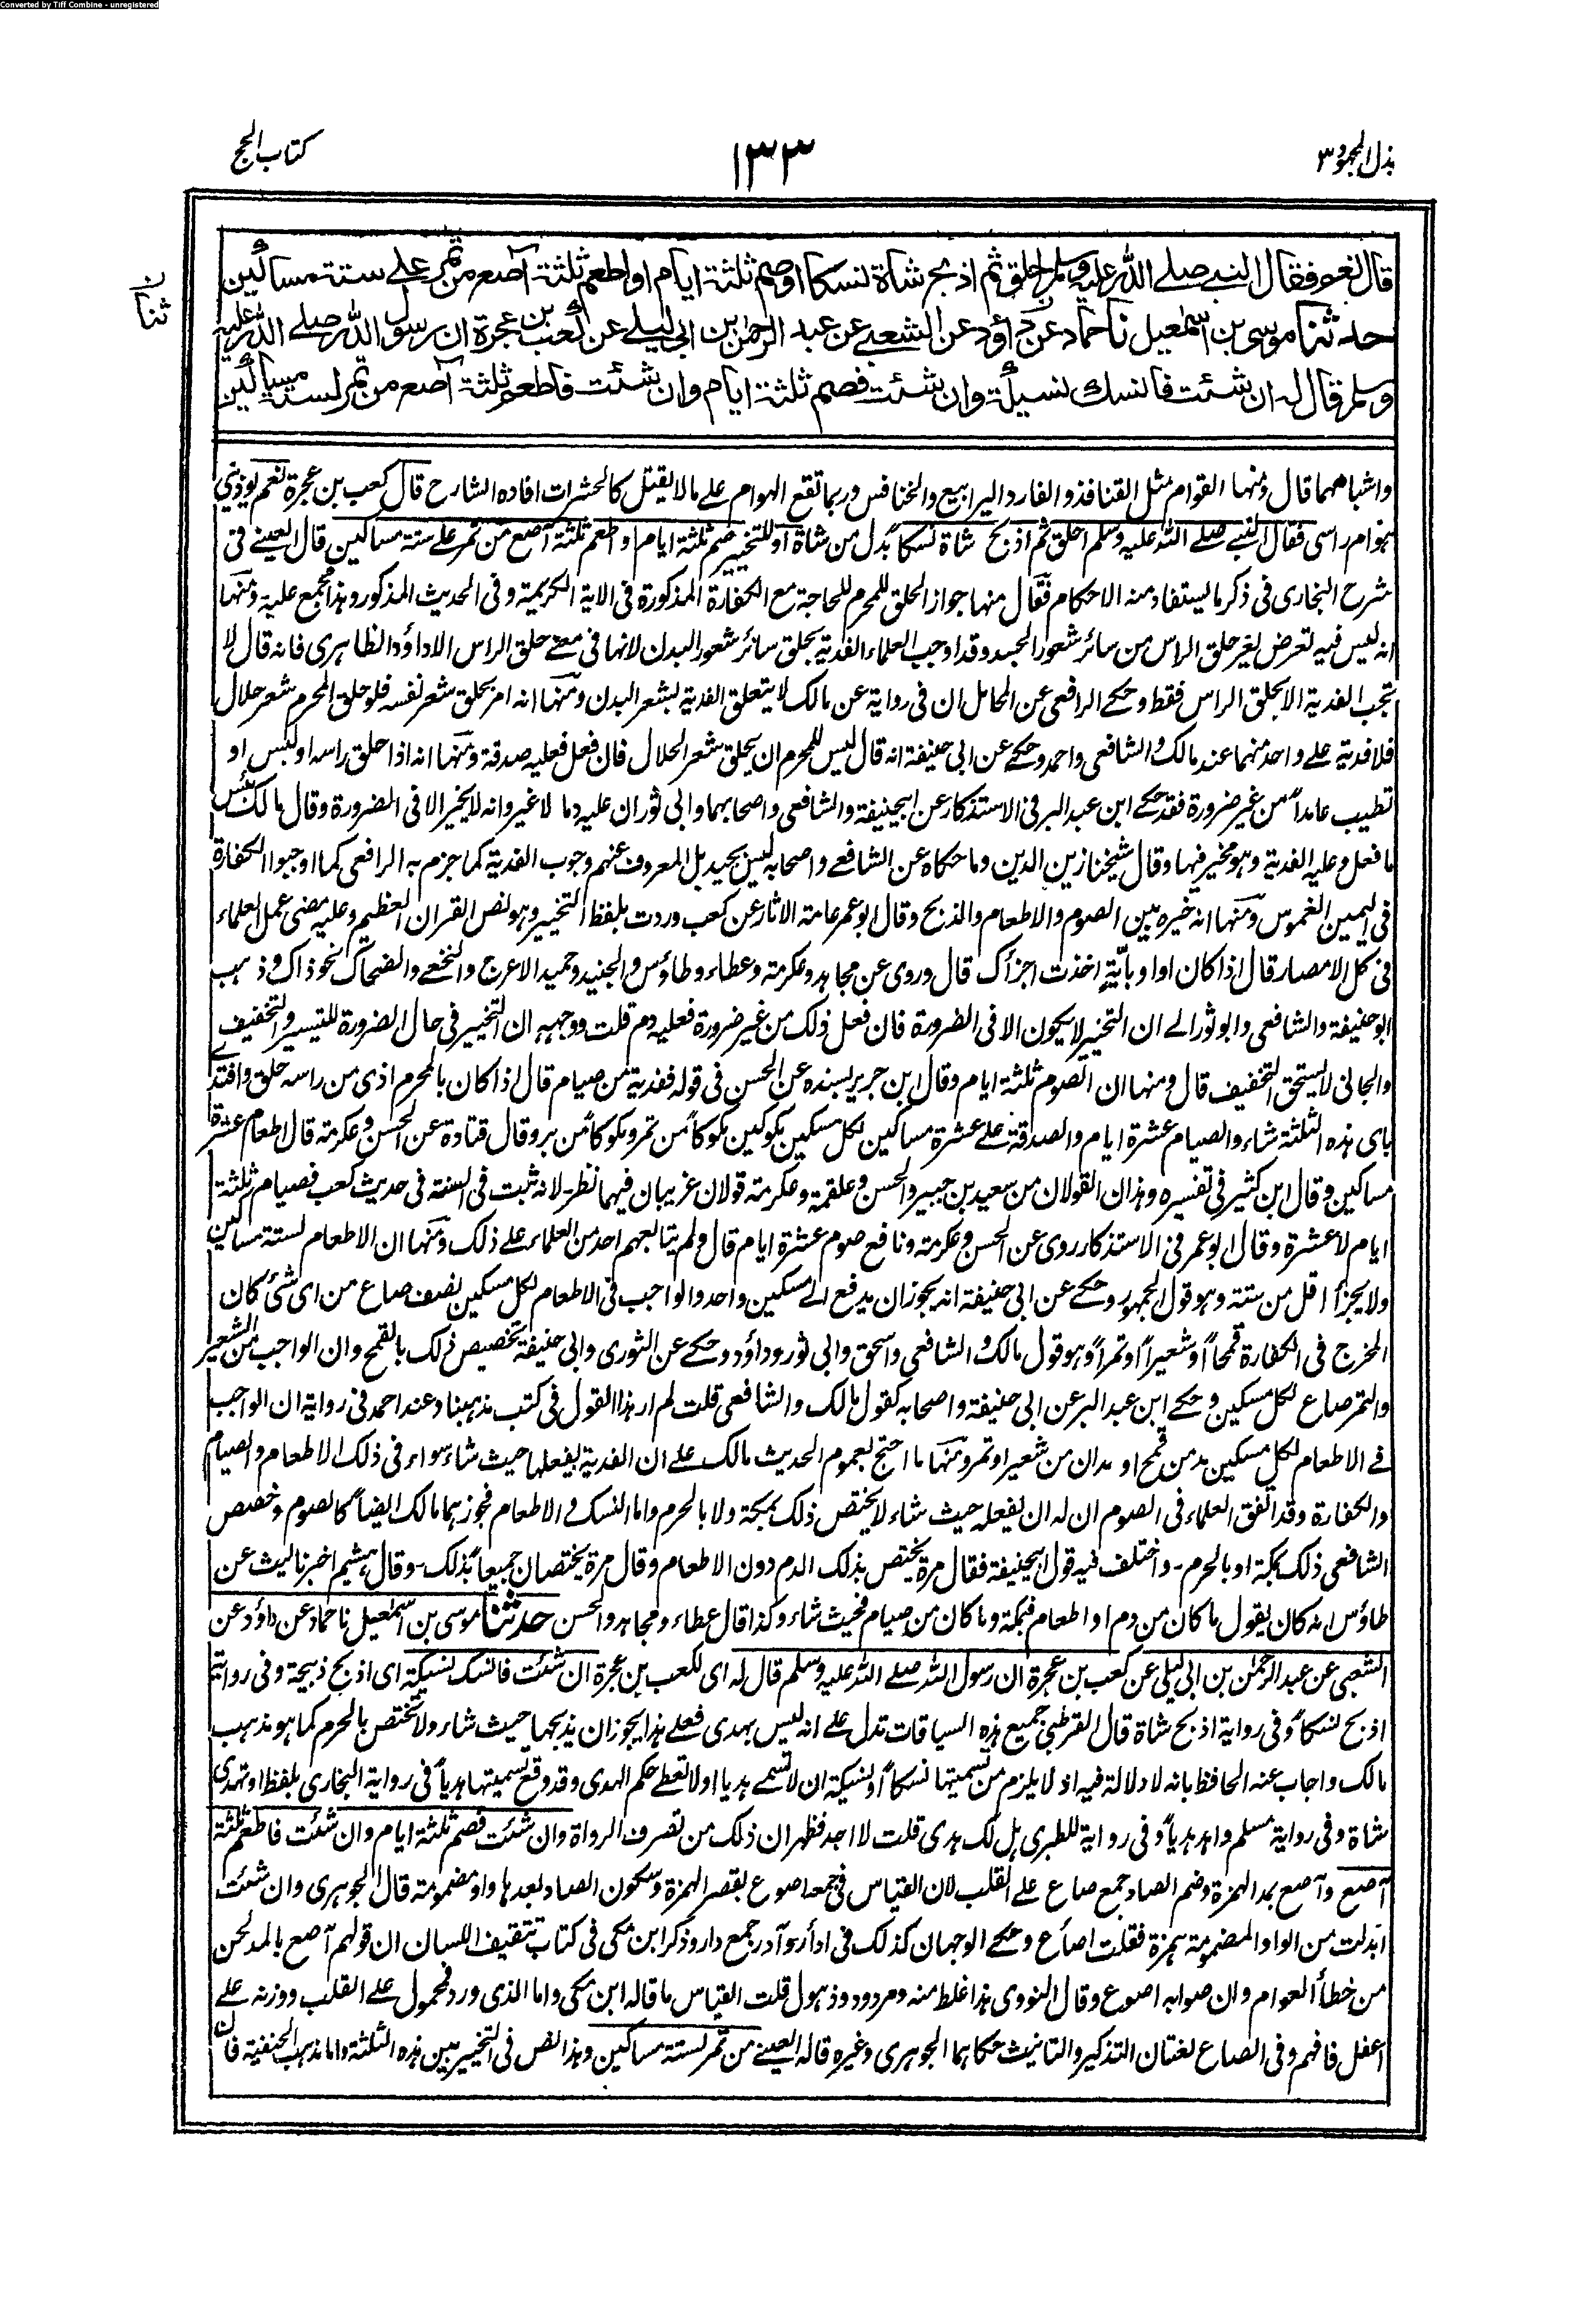 Converted by Tiff Combine - unregistered
بذل المجهود ٣
١٣٣
كتاب الحج
قال نعم فقال النبي صلے الله عليه وسلم احلق ثم اذبح شاة نسكا اوصم ثلثة ايام او اطعم ثلثة آصع من تمر علے ستة مساكين
حدثنا موسى بن اسمعيل نا حماد عن داؤد عن الشعبي عن عبد الرحمن بن ابي ليلے عن كعب بن عجرة ان رسول الله صلے الله عليه
ن
ثنا
وسلم قال له ان شئت فانسك نسيكة وان شئت فصم ثلثة ايام وان شئت فاطعم ثلثة آصع من تمر لستة مساكين
واشباههما قال ومنها القوام مثل القنافذ والفار واليرابيع والخنافس وربما تقع الهوام علے ما لا يقتل كالحشرات افاده الشارح قال كعب بن عجرة نعم يوذيني
هوام راسى فقال النبے صلے الله عليه وسلم احلق ثم اذبح شاة نسكاً بدل من شاة او للتخيير صم ثلثة ايام او اطعم ثلثة آصع من تمر علے ستة مساكين قال العينے فى
شرح البخارى فى ذكر ما يستفاد منه الاحكام فقال منها جواز الحلق للمحرم للحاجة مع الكفارة المذكورة فى الاية الكريمة وفى الحديث المذكور وهذا مجمع عليه ومنها
انه ليس فيه تعرض لغير حلق الراس من سائر شعور الجسد وقد اوجب العلماء الفدية بحلق سائر شعور البدن لانها فى معنے حلق الراس الا داؤد الظاهرى فانه قال لا
تجب الفدية الا بحلق الراس فقط وحكے الرافعى عن المحامل ان فى رواية عن مالك لا يتعلق الفدية بشعر البدن ومنها انه امر بحلق شعر نفسه فلو حلق المحرم شعر حلال
فلا فدية علے واحد منهما عند مالك والشافعى واحمد وحكے عن ابى حنيفة انه قال ليس للمحرم ان يحلق شعر الحلال فان فعل فعليه صدقة ومنها انه اذا حلق راسه او لبس او
تطيب عامداً من غير ضرورة فقد حكے ابن عبد البر فى الاستذكار عن ابيحنيفة والشافعى واصحابهما وابى ثور ان عليه دما لا غير وانه لا يخير الا فى الضرورة وقال مالك بئس
ما فعل وعليه الفدية وهو مخير فيها وقال شيخنا زين الدين وما حكاه عن الشافعے واصحابه ليس بجيد بل المعروف عنهم وجوب الفدية كما جزم به الرافعى كما اوجبوا الكفارة
فى اليمين الغموس ومنها انه خيره بين الصوم والاطعام والذبح وقال ابو عمر عامة الاثار عن كعب وردت بلفظ التخيير وهو نص القران العظيم وعليه مضى عمل العلماء
فى كل الامصار قال اذا كان او او بايّةٍ اخذت اجزأك قال وروى عن مجاهد وعكرمة وعطاء وطاؤس والجنيد وحميد الاعرج والنخعے والضحاك نحو ذاك وذهب
ابو حنيفة والشافعى وابو ثور الے ان التخيير لا يكون الا فى الضرورة فان فعل ذلك من غير ضرورة فعليه دم قلت ووجهه ان التخيير فى حال الضرورة للتيسير والتخفيف
والجانى لا يستحق التخفيف قال ومنها ان الصوم ثلثة ايام وقال ابن جرير بسنده عن الحسن فى قوله ففدية من صيام قال اذا كان بالمحرم اذى من راسه حلق وافتدے
باى هذه الثلثة شاء والصيام عشرة ايام والصدقة علے عشرة مساكين لكل مسكين مكوكين مكوكاً من تمر ومكوكاً من بر وقال قتادة عن الحسن وعكرمة قال اطعام عشرة
مساكين وقال ابن كثير فى تفسيره وهذان القولان من سعيد بن جبير والحسن وعلقمة وعكرمة قولان غريبان فيهما نظر - لانه ثبت فى السنة فى حديث كعب فصيام ثلثة
ايام لا عشرة وقال ابو عمر فى الاستذكار روى عن الحسن وعكرمة ونافع صوم عشرة ايام قال ولم يتابعهم احد من العلماء علے ذلك ومنها ان الاطعام لستة مساكين
ولا يجزأ اقل من ستة وهو قول الجمهور وحكے عن ابى حنيفة انه يجوز ان يدفع الے مسكين واحد والواجب فى الاطعام لكل مسكين نصف صاع من اى شئ كان
المخرج فى الكفارة قمحاً او شعيراً او تمراً وهو قول مالك والشافعى واسحق وابى ثور وداؤد وحكے عن الثورى وابى حنيفة تخصيص ذلك بالقمح وان الواجب من الشعير
والتمر صاع لكل مسكين وحكے ابن عبد البر عن ابى حنيفة واصحابه كقول مالك والشافعى قلت لم ار هذا القول فى كتب مذهبنا وعند احمد فى رواية ان الواجب
فے الاطعام لكل مسكين مد من قمح او مدان من شعير او تمر ومنها ما احتج بعموم الحديث مالك علے ان الفدية يفعلها حيث شاء سواء فى ذلك الاطعام والصيام
والكفارة وقد اتفق العلماء فى الصوم ان له ان يفعله حيث شاء لا يختص ذلك بمكة ولا بالحرم واما النسك والاطعام فجوزهما مالك ايضاً كالصوم وخصص
الشافعى ذلك بمكة او بالحرم - واختلف فيه قول ابيحنيفة فقال مرة يختص بذلك الدم دون الاطعام وقال مرة يختصان جميعاً بذلك - وقال هشيم اخبرنا ليث عن
طاؤس انه كان يقول ما كان من دم او اطعام فبمكة وما كان من صيام فحيث شاء وكذا قال عطاء ومجاهد والحسن حدثنا موسى بن اسمعيل نا حماد عن داؤد عن
الشعبى عن عبد الرحمن بن ابى ليلى عن كعب بن عجرة ان رسول الله صلے الله عليه وسلم قال له اى لكعب بن عجرة ان شئت فانسك نسيكة اى اذبح ذبيحة وفى رواية
اذبح نسكاً وفى رواية اذبح شاة قال القرطبى جميع هذه السياقات تدل علے انه ليس بهدى فعلے هذا يجوز ان يذبحها حيث شاء ولا تختص بالحرم كما هو مذهب
مالك واجاب عنه الحافظ بانه لا دلالة فيه اذ لا يلزم من تسميتها نسكاً او نسيكة ان لا تسمے هديا او لا تعطے حكم الهدى وقد وقع تسميتها هدياً فى رواية البخارى بلفظ او تهدى
شاة وفى رواية مسلم واهد هدياً وفى رواية للطبرى هل لك هدى قلت لا اجد فظهر ان ذلك من تصرف الرواة وان شئت فصم ثلثة ايام وان شئت فاطعم ثلثة
آصع وآصع بمد الهمزة وضم الصاد جمع صاع علے القلب لان القياس فى جمعه اصوع بقصر الهمزة وسكون الصاد بعدها واو مضمومة قال الجوهرى وان شئت
ابدلت من الواو المضمومة همزة فقلت اصأع وحكے الوجهان كذلك فى ادأر وآدر جمع دار وذكر ابن مكى فى كتاب تثقيف اللسان ان قولهم آصع بالمد لحن
من خطأ العوام وان صوابه اصوع وقال النووى هذا غلط منه ومردود وذهول قلت القياس ما قاله ابن مكى واما الذى ورد فمحمول علے القلب ووزنه علے
اعفل فافهم وفى الصاع لغتان التذكير والتانيث حكاهما الجوهرى وغيره قاله العينے من تمر لستة مساكين وهذا نص فى التخيير بين هذه الثلثة واما مذهب الحنفية فان